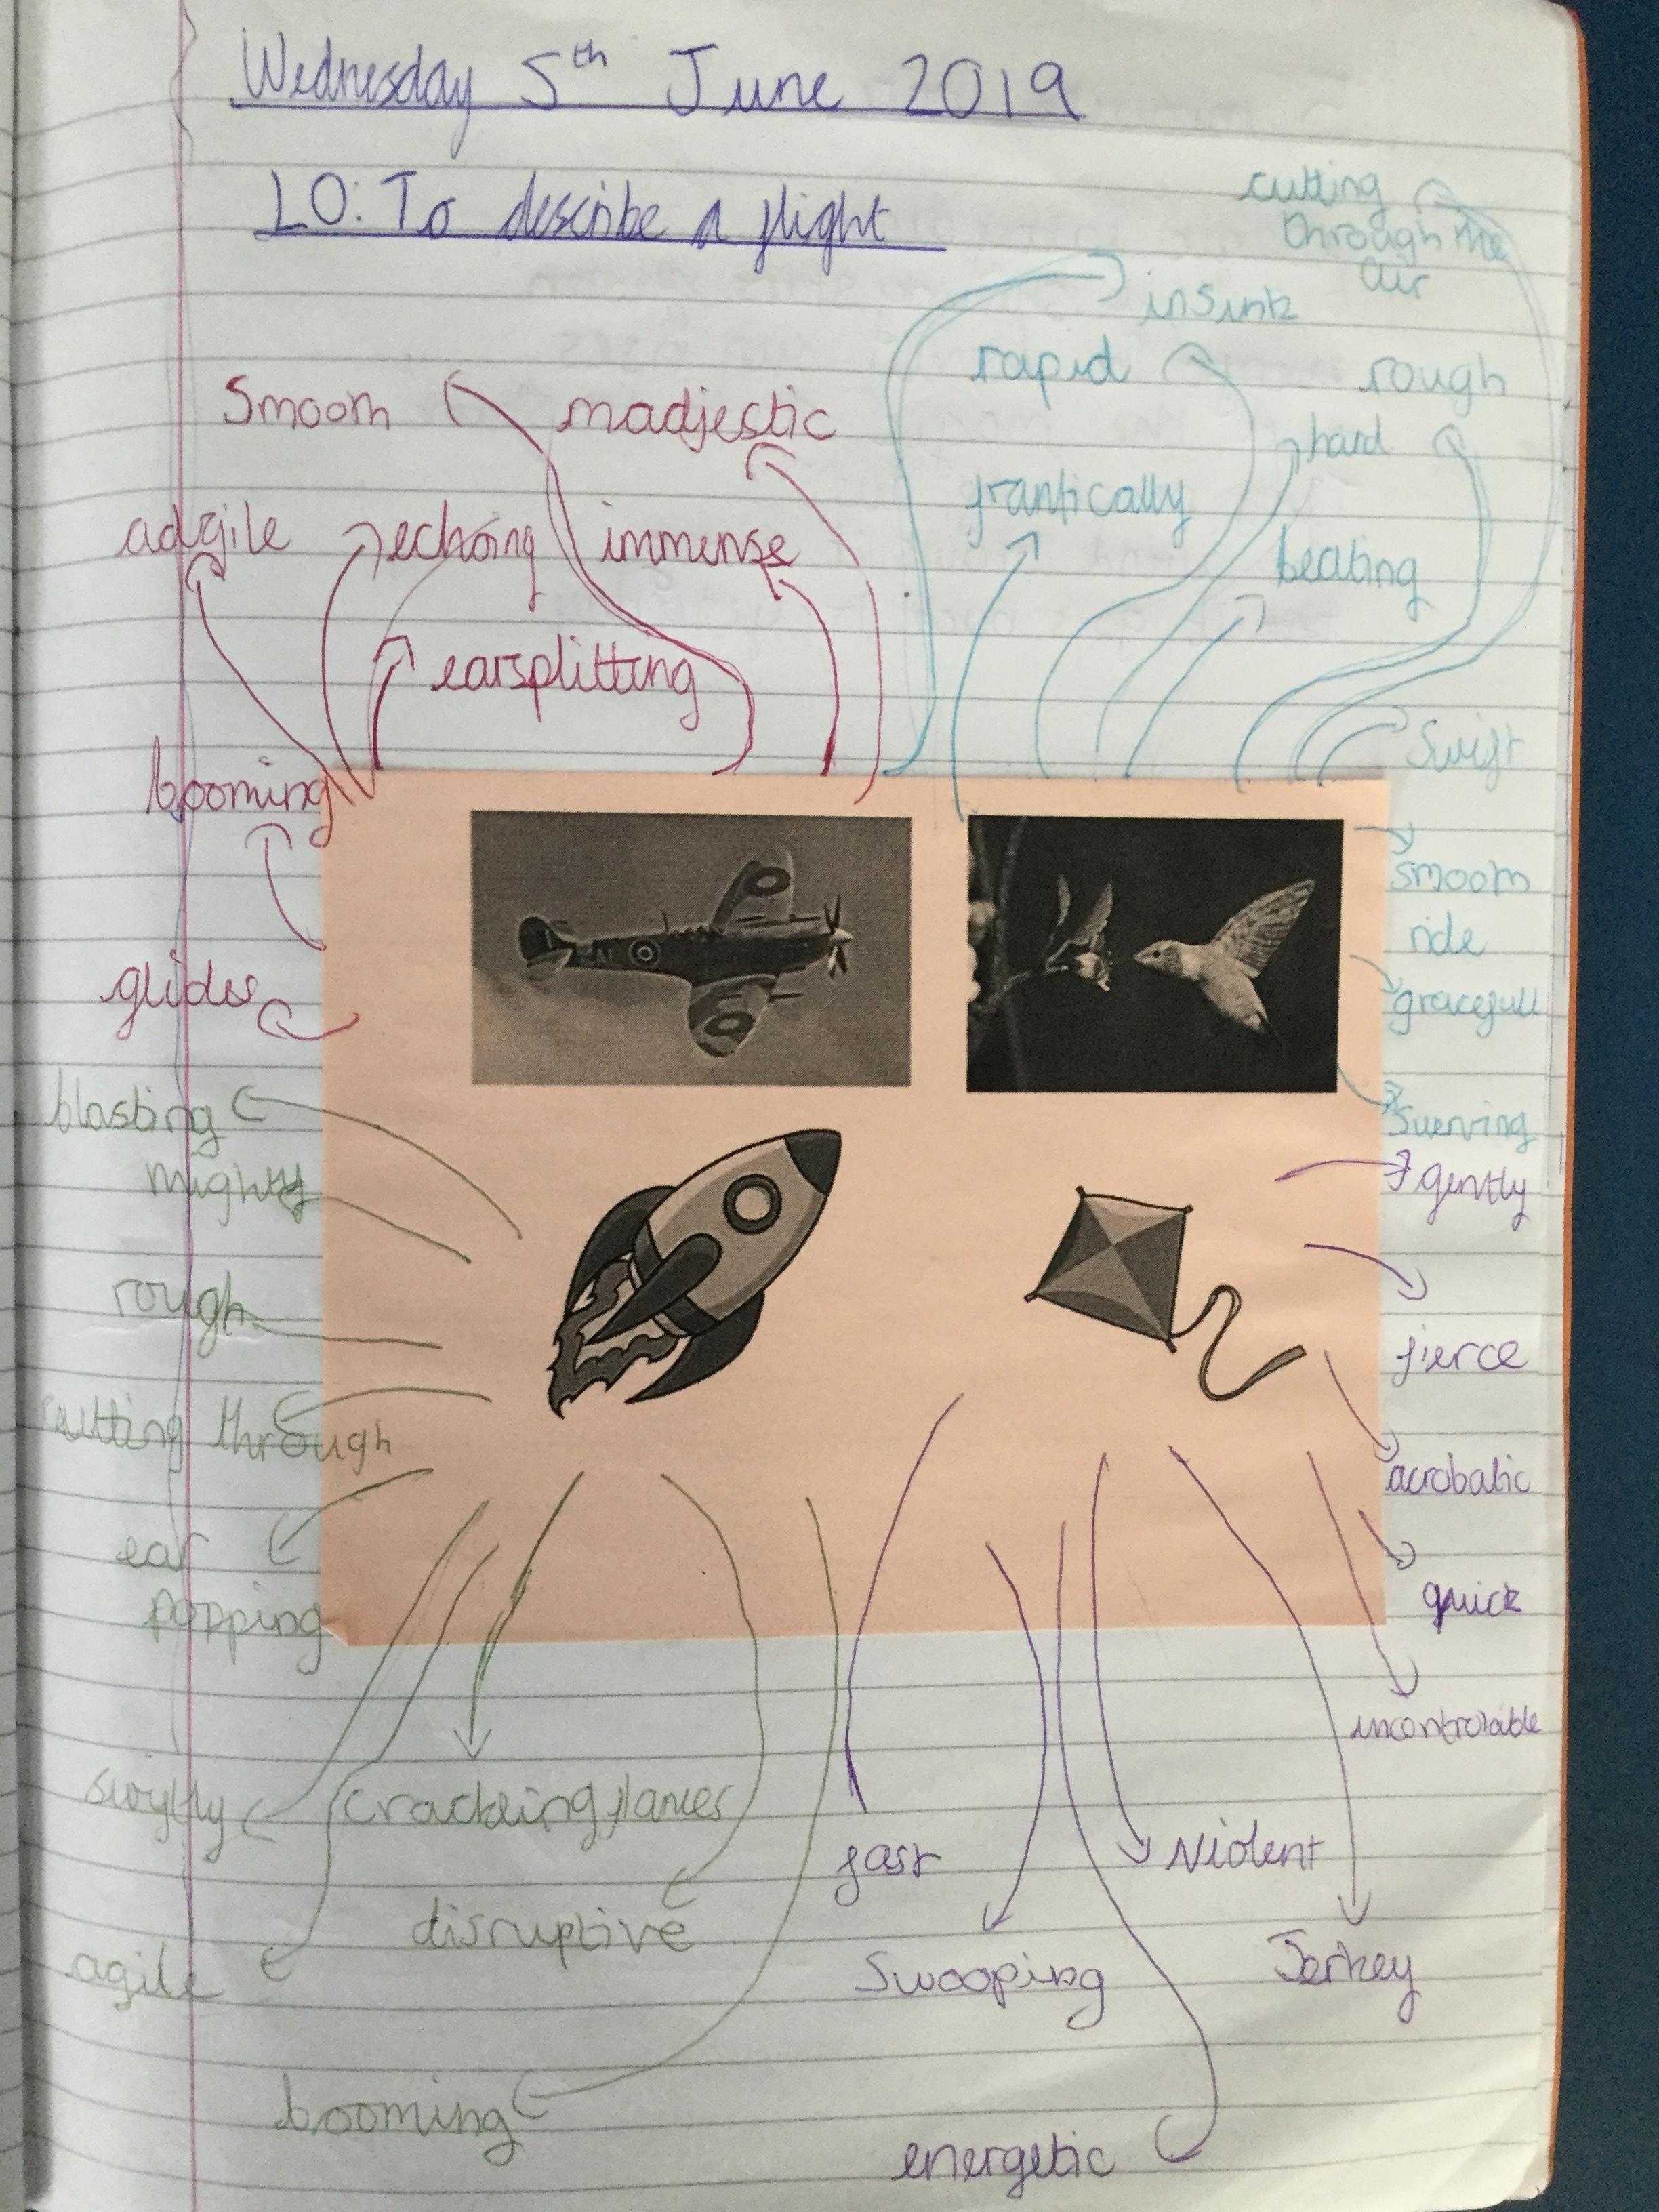 Wednesday 5th June 2019
LO: To describe a flight
cutting
through the
air
insink
rapid
rough
hard
frantically
beating
swift
smooth
ride
gracefull
swerving
smooth
madjestic
adgile
echoing
immense
earsplitting
booming
glides
blasting
mighty
rough
cutting through
ear
popping
swiftly
crackling flames
disruptive
agile
booming
gently
fierce
acrobatic
quick
incontrolable
fast
violent
swooping
Jerkey
energetic